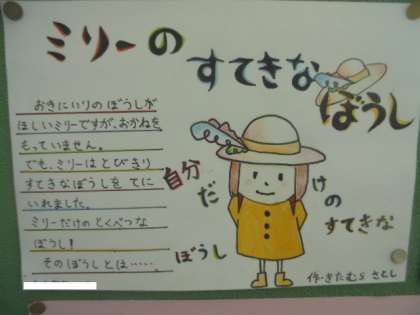 ミリーの
すてきな
ぼうし
おきにいりのぼうしが
ほしいミリーですが、おかねを
もっていません。
でも、ミリーはとびきり
すてきなぼうしをてに
いれました。
ミリーだけのとくべつな
ぼうし！
そのぼうしとは……
自分
だけの
すてきな
ぼうし
作・きたむら さとし